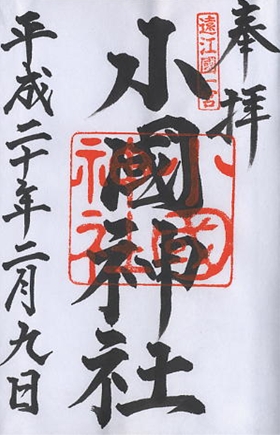 奉拝
遠江國一宮
小國神社
小國神社
平成二十年二月九日